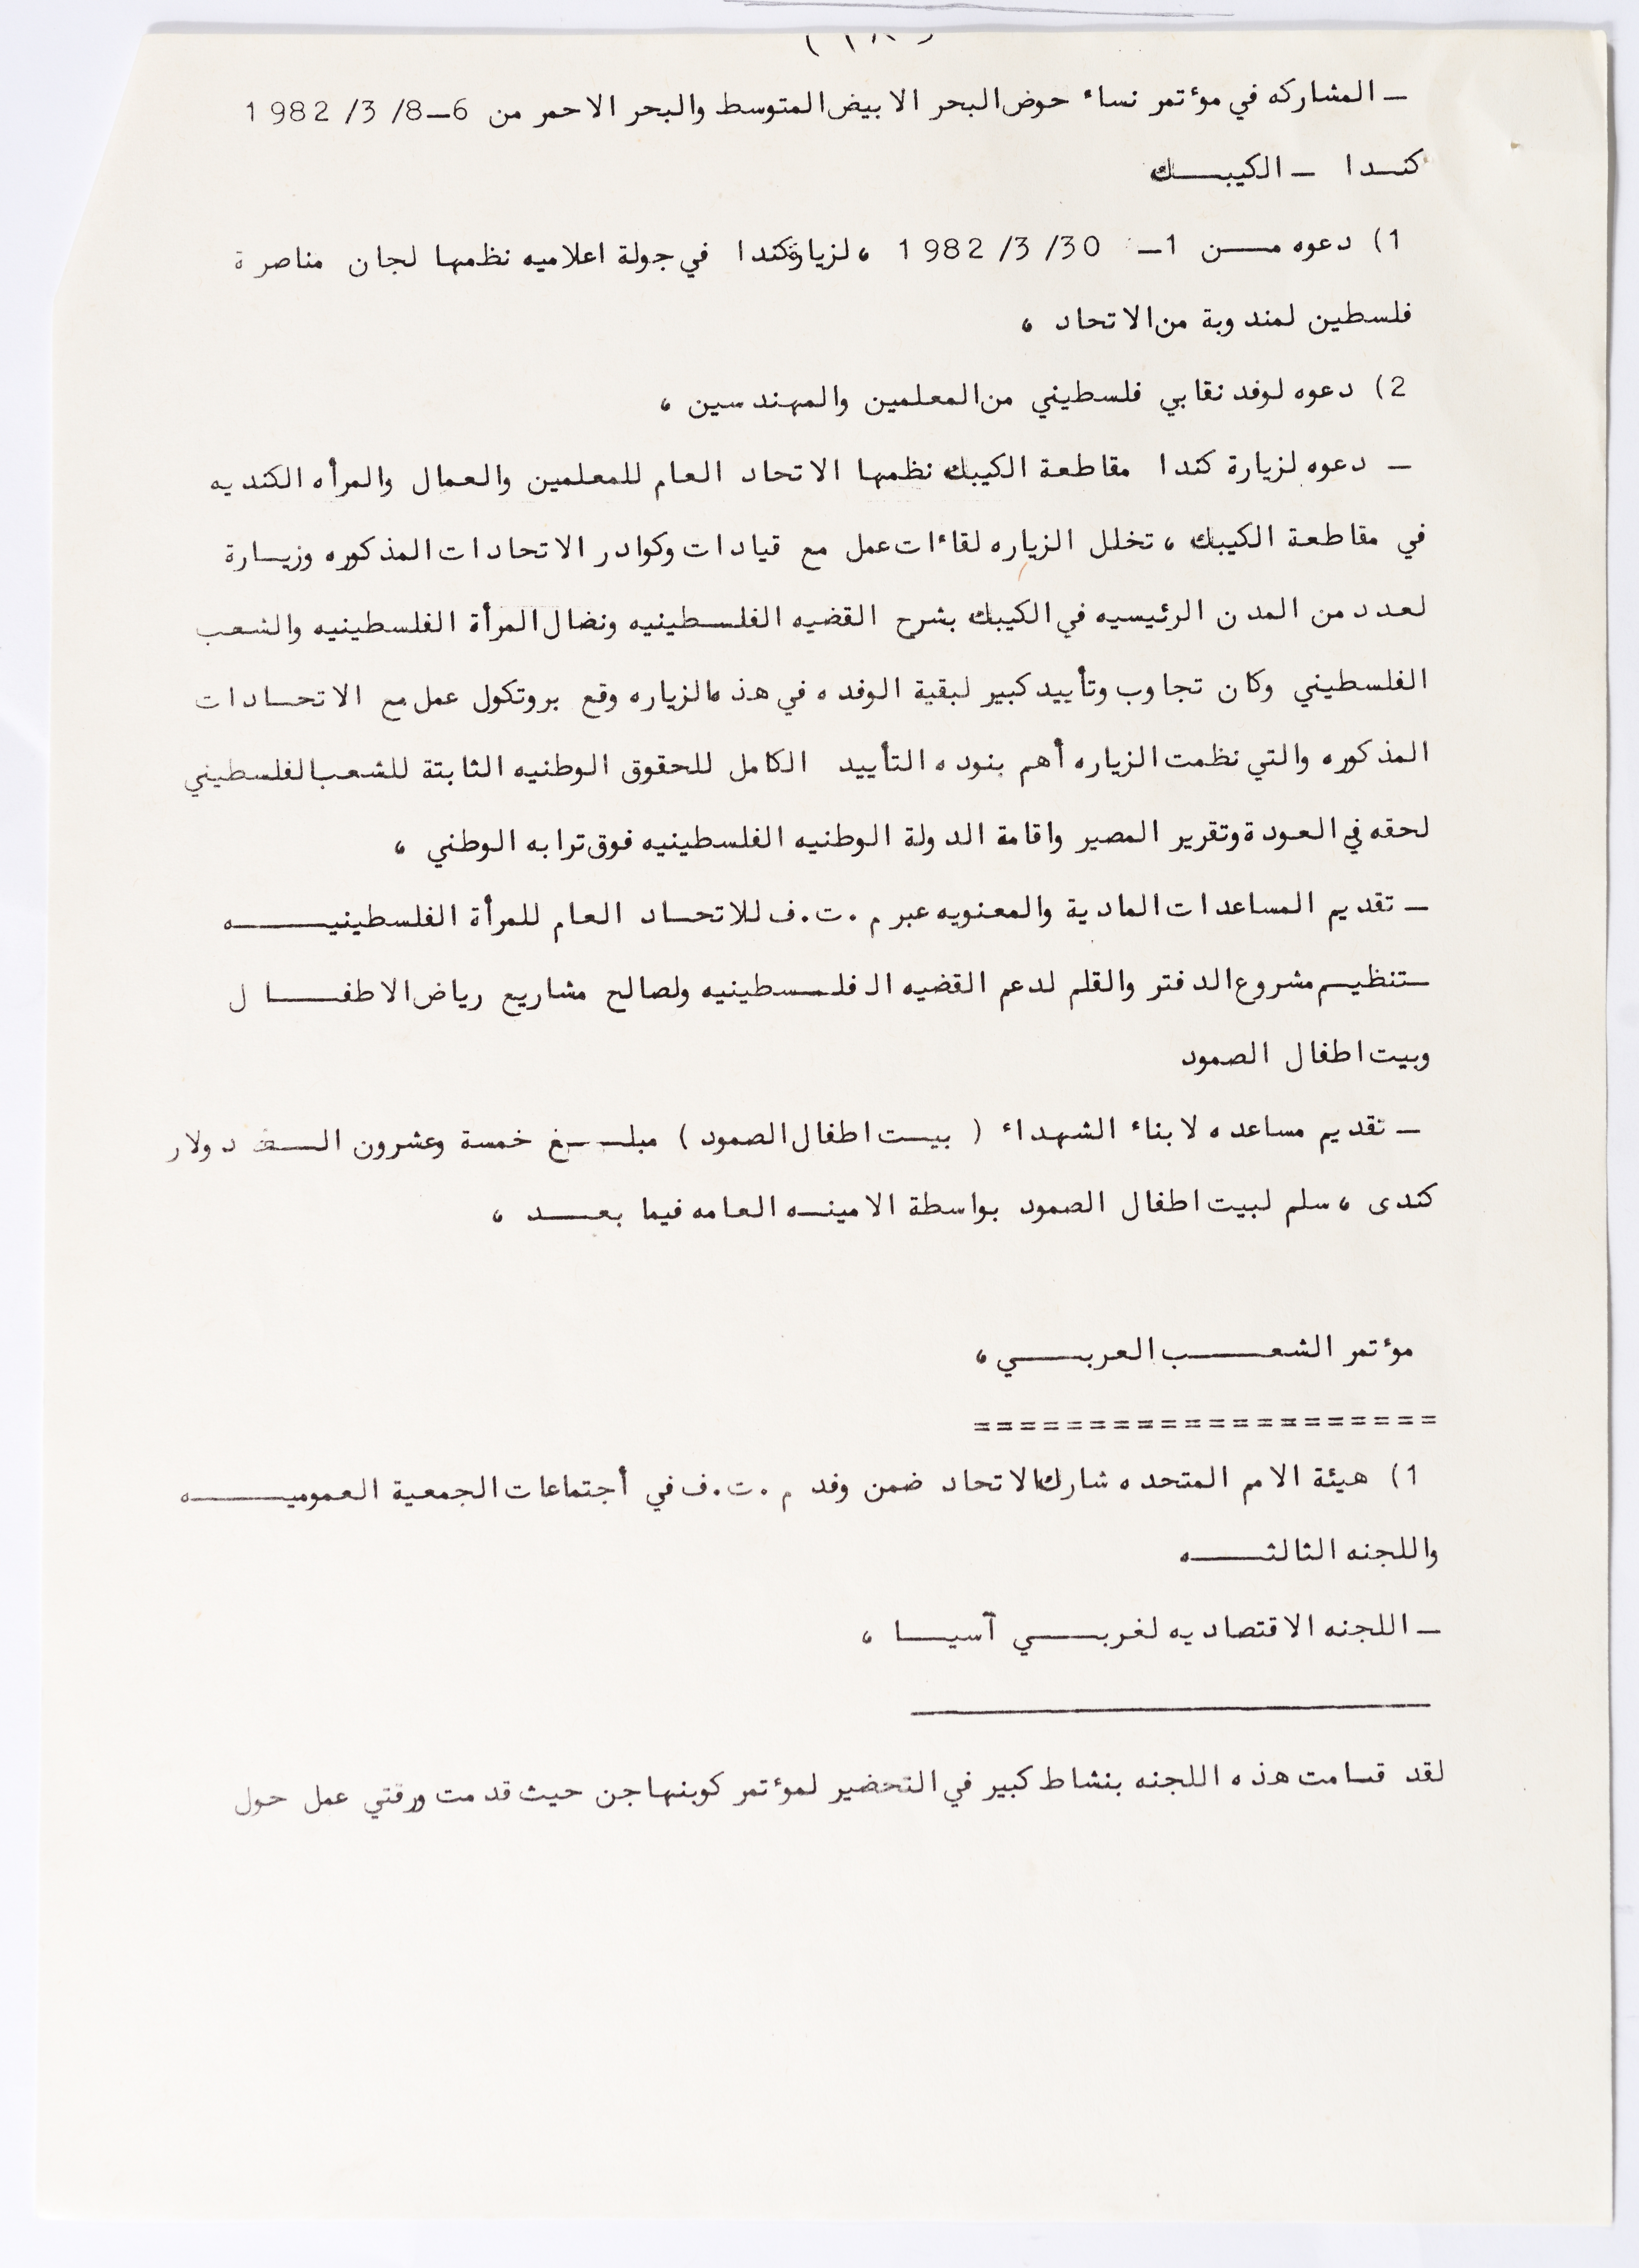 (١٨)
ـ المشاركه في مؤتمر نساء حوض البحر الابيض المتوسط والبحر الاحمر من 6ـ8/ 3/ 1982
كنـدا ـ الكيبــك
1) دعوه مــن 1ـ 30/ 3/ 1982 ، لزيارة كندا في جولة اعلاميه نظمها لجان مناصرة
فلسطين لمندوبة من الاتحاد ،
2) دعوه لوفد نقابي فلسطيني من المعلمين والمهندسين ،
ـ دعوه لزيارة كندا مقاطعة الكيبك نظمها الاتحاد العام للمعلمين والعمال والمرأه الكنديه
في مقاطعة الكيبك ، تخلل الزياره لقاءات عمل مع قيادات وكوادر الاتحادات المذكوره وزيـارة
لعدد من المدن الرئيسيه في الكيبك بشرح القضيه الفلسطينيه ونضال المرأة الفلسطينيه والشعب
الفلسطيني وكان تجاوب وتأييد كبير لبقية الوفده في هذه الزياره وقع بروتكول عمل مع الاتحـادات
المذكوره والتي نظمت الزياره أهم بنوده التأييد الكامل للحقوق الوطنيه الثابتة للشعب الفلسطيني
لحقه في العودة وتقرير المصير واقامة الدولة الوطنيه الفلسطينيه فوق ترابه الوطني ،
ـ تقديم المساعدات المادية والمعنويه عبر م.ت.ف للاتحـاد العام للمرأة الفلسطينيــــه
ـتنظيـم مشروع الدفتر والقلم لدعم القضيه الفلـسطينيه ولصالح مشاريع رياض الاطفــال
وبيت اطفال الصمود
ـ تقديم مساعده لابناء الشهداء ( بيـت اطفال الصمود ) مبلــغ خمسة وعشرون الــف دولار
كندى ، سلم لبيت اطفال الصمود بواسطة الامينـه العامه فيما بعــد ،
مؤتمر الشعـــب العربــي ،
====================
1) هيئة الامم المتحده شارك الاتحاد ضمن وفد م.ت.ف في أجتماعات الجمعية العموميــــه
واللجنه الثالثــه
ـ اللجنه الاقتصاديه لغربــي آسيــا ،
لقد قـامت هذه اللجنه بنشاط كبير في التحضير لمؤتمر كوبنهاجن حيث قدمت ورقتي عمل حول